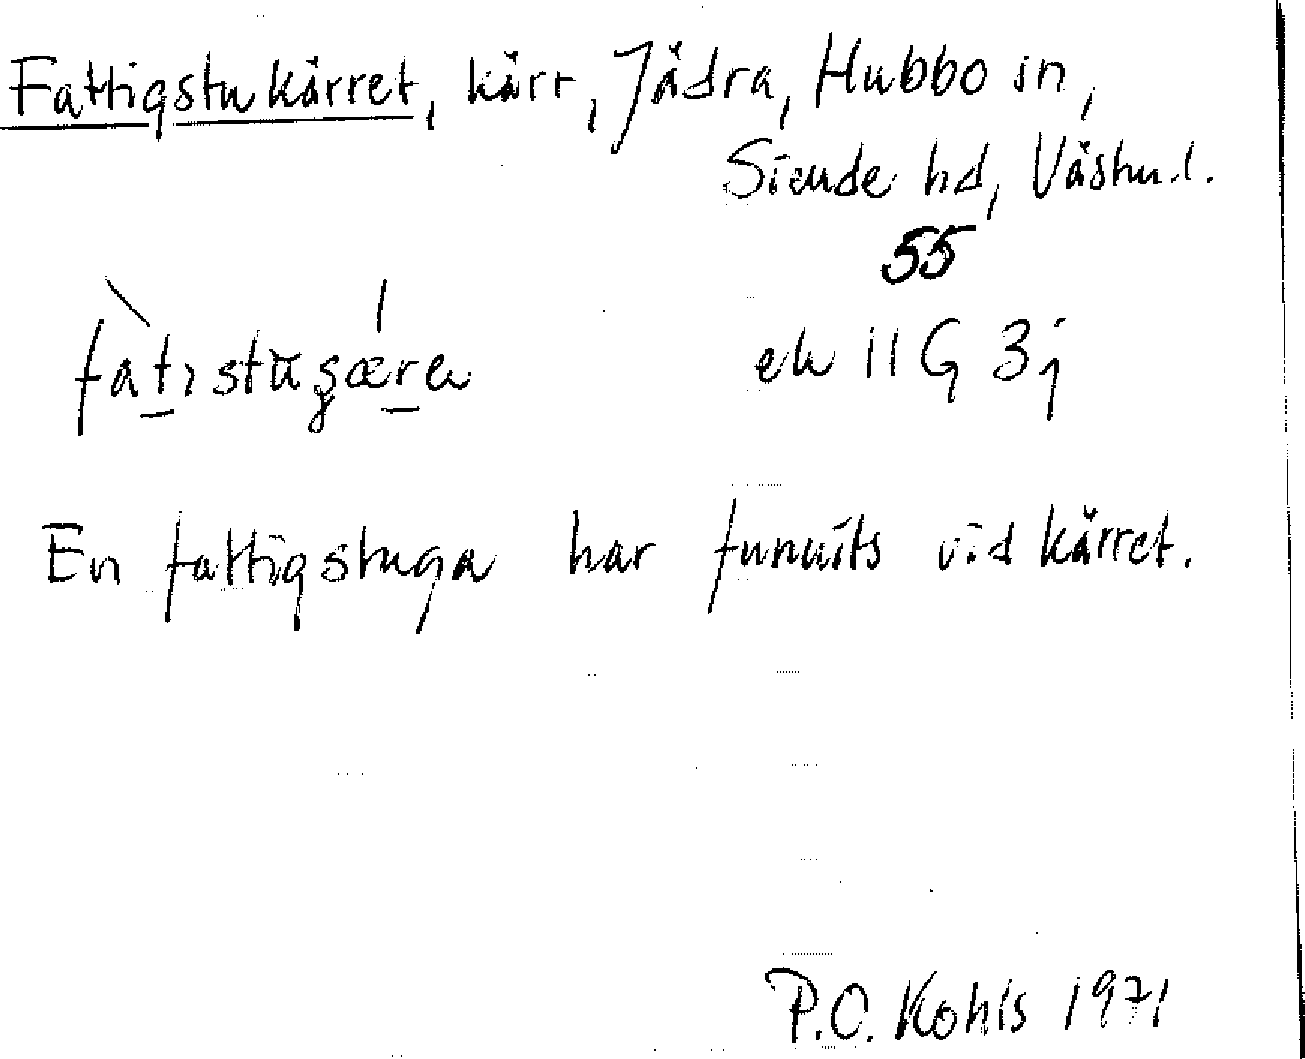 Fattigstukärret, kärr, Jädra, Hubbo sn,
Siende hd, Västm. l.
55
ek 11 G 3j
En fattigstuga har funnits vid kärret.
P.O. Kohls 1971